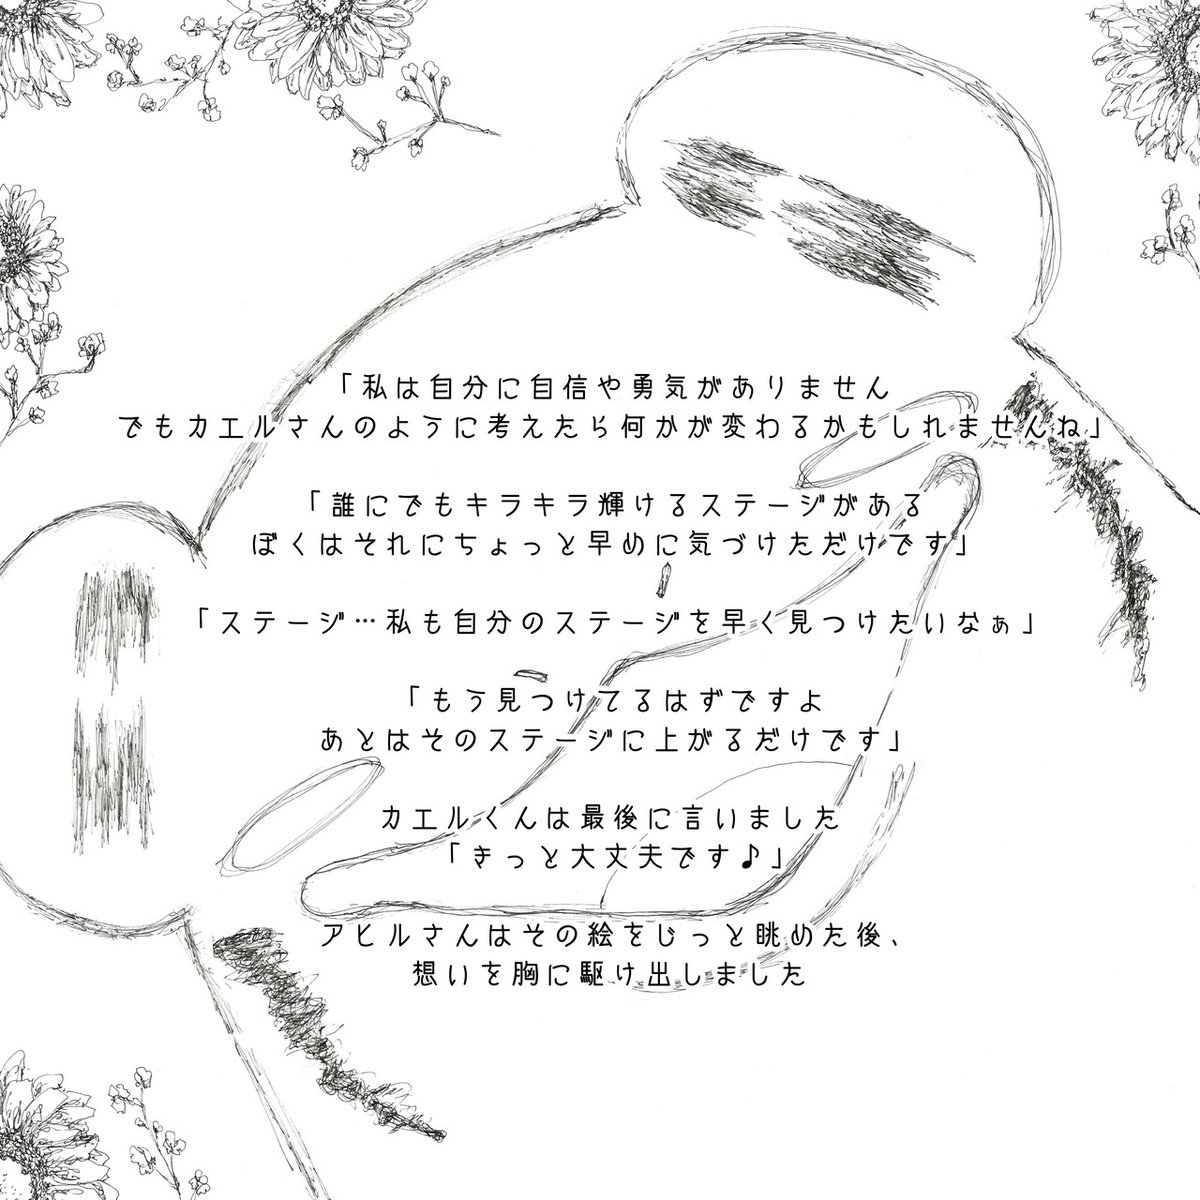 「私は自分に自信や勇気がありません
でもカエルさんのように考えたら何かが変わるかもしれませんね」
「誰にでもキラキラ輝けるステージがある
ぼくはそれにちょっと早めに気づけただけです」
「ステージ…私も自分のステージを早く見つけたいなぁ」
「もう見つけてるはずですよ
あとはそのステージに上がるだけです」
カエルくんは最後に言いました
「きっと大丈夫です♪」
アヒルさんはその絵をじっと眺めた後、
想いを胸に駆け出しました